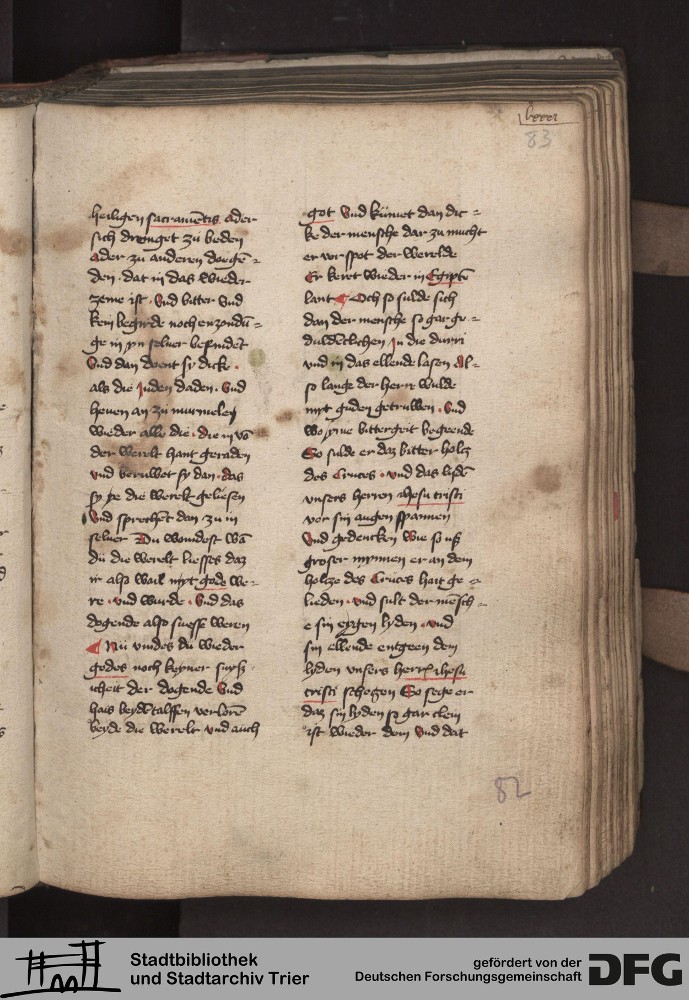 83
heiligen sacramētis ader
sich drenget zů beden
Ader zu anderen doegē=
den · dat in das wieder
zeme ist · Vnd bitter Vnd
kein begirde noch enzondū=
ge in yn seluer befindet
Vnd dan doent sy dicke ·
als die Juden daden · Vnd
heuen an zu murmelen
wieder alle die · die in vō
der werelt hant geraden
vnd beruwet sy dan · das
sy ye die werelt geliesen
Vnd sprechēt dan zu in
seluer Du wondest wā
dů die werelt liesses daz
ir also wail myt gode we=
re · vnd wurde · Vnd das
dogende also suesse weren
Nů vindes dů wieder
godes noch keyner
der dogende Vnd
hais beydētalffen verlorē
beyde die werelt vnd auch
got Vnd kumet dan dic=
ke der mensche dar zu macht
er vor spot der werelde
Er keret wieder in Egiptē
lant Och so sulde sich
dan der mensche so gar ge=
duldēclichen in die durri
vnd in das ellende lasen Al=
so lange der herr wulde
myt guden getruwen · Vnd
wo yme bittergeit begeende
So sulde er daz bitter holz
des Cruces · vnd das lidē
vnsers herren Jhesu cristi
vor sin augen spannen
Vnd gedencken wie so uß
groser mynnen er an dem
holze des Cruces hait ge=
lieden · vnd sult der mēsch=
e sin eygen lyden · vnd
sin ellende entgeen dem
lyden vnsers herrē Jhesu
cristi schezen So sege er
daz sin lyden so gar clein
ist wieder dem Vnd dat
82
Stadtbibliothek
und Stadtarchiv Trier
gefördert von der
Deutschen Forschungsgemeinschaft
DFG